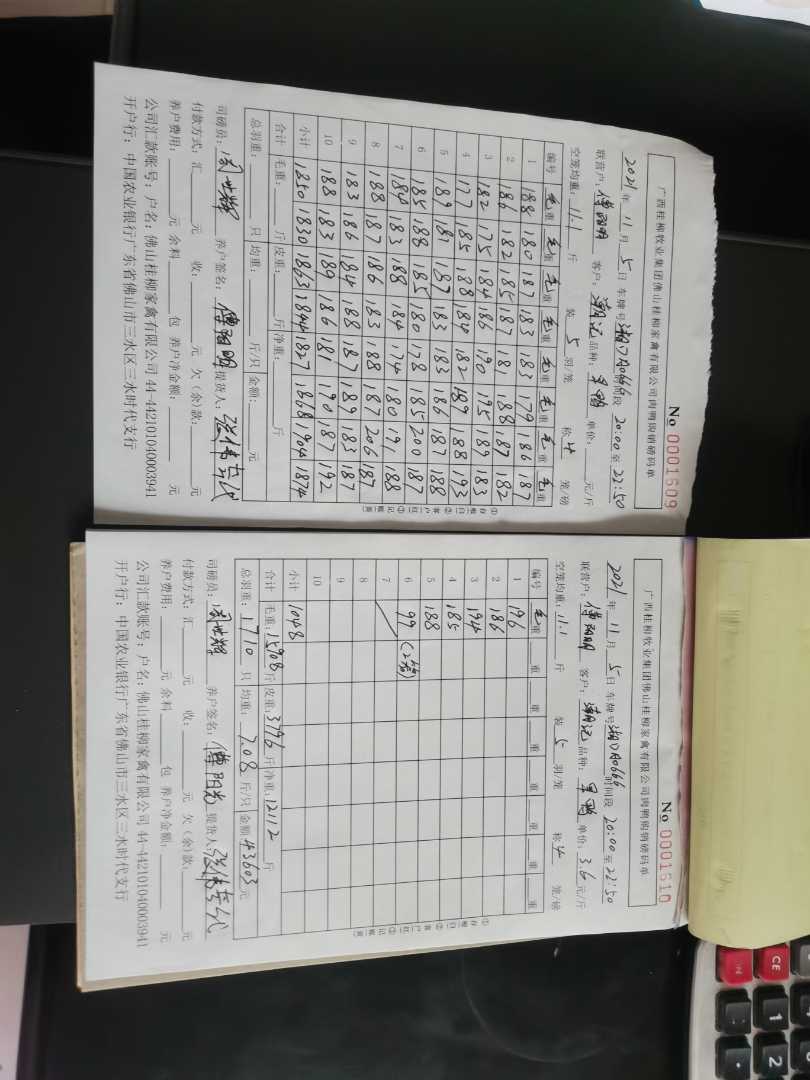 广西桂柳牧业集团佛山桂柳家禽有限公司肉鸭购销磅码单
No 0001609
2021年11月5日 车牌号 时间段 20:00至22:50
联营户: 傅阳明 客户: 潮记 品种: 单价: 元/斤
空笼均重: 11.1 斤 装 5 羽/笼 称 4 笼/磅
编号 毛重 毛重 毛重 毛重 毛重 毛重 毛重 毛重
1 188 180 187 183 183 179 186 187
2 186 182 185 187 181 188 187 182
3 182 175 184 186 190 195 189 183
4 177 185 188 184 182 189 188 193
5 189 181 187 183 183 186 187 188
6 185 188 185 180 178 185 200 187
7 184 183 188 184 174 180 191 188
8 188 187 186 183 188 187 206 187
9 183 186 184 188 187 189 183 187
10 188 183 189 186 181 190 187 192
小计 1850 1830 1863 1844 1827 1868 1904 1874
合计 毛重: 斤 皮重: 斤 净重: 斤
总羽重: 只 均重: 斤/只 金额: 元
①存根(白) ②客户(红) ③记账(黄)
司磅员: 周世辉 养户签名: 傅阳明 提货人:
付款方式: 汇 元 收: 元 欠(余)款: 元
养户费用: 元 余料 包 养户净金额: 元
公司汇款账号: 户名: 佛山桂柳家禽有限公司 44-442101040003941
开户行: 中国农业银行广东省佛山市三水区三水时代支行
广西桂柳牧业集团佛山桂柳家禽有限公司肉鸭购销磅码单
No 0001610
2021年11月5日 车牌号 时间段 20:00至22:50
联营户: 傅阳明 客户: 潮记 品种: 单价: 3.6元/斤
空笼均重: 11.1 斤 装 5 羽/笼 称 4 笼/磅
编号 毛重 重 重 重 重 重 重 重
1 196
2 186
3 194
4 185
5 188
6 99 (2笼)
7
8
9
10
小计 1048
合计 毛重: 15908斤 皮重: 3796斤 净重: 12112斤
总羽重: 1710只 均重: 7.08斤/只 金额 43603元
①存根(白) ②客户(红) ③记账(黄)
司磅员: 周世辉 养户签名: 傅阳光 提货人:
付款方式: 汇 元 收: 元 欠(余)款: 元
养户费用: 元 余料 包 养户净金额: 元
公司汇款账号: 户名: 佛山桂柳家禽有限公司 44-442101040003941
开户行: 中国农业银行广东省佛山市三水区三水时代支行
CE
1
2